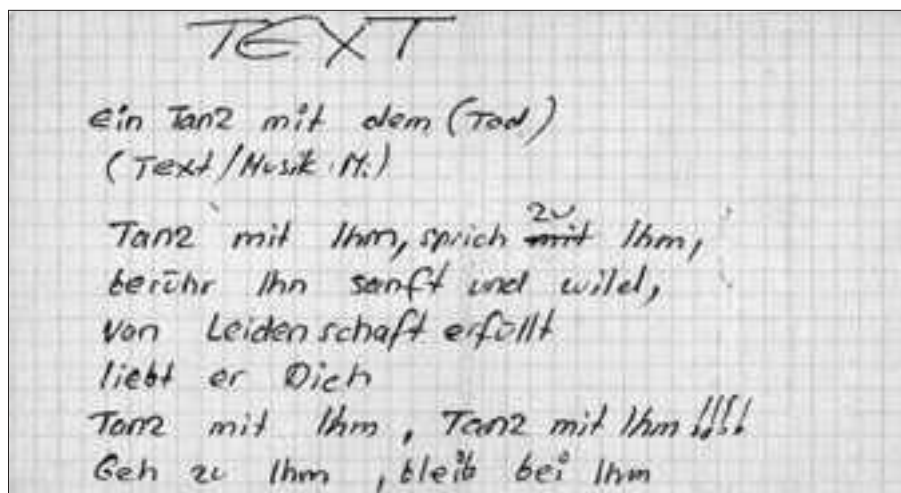 TEXT
Ein Tanz mit dem (Tod)
(Text/Musik: M.)
Tanz mit Ihm, sprich zu mit Ihm,
berühr Ihn sanft und wild,
von Leidenschaft erfüllt
liebt er Dich
Tanz mit Ihm, Tanz mit Ihm!!!!
Geh zu Ihm, bleib bei Ihm